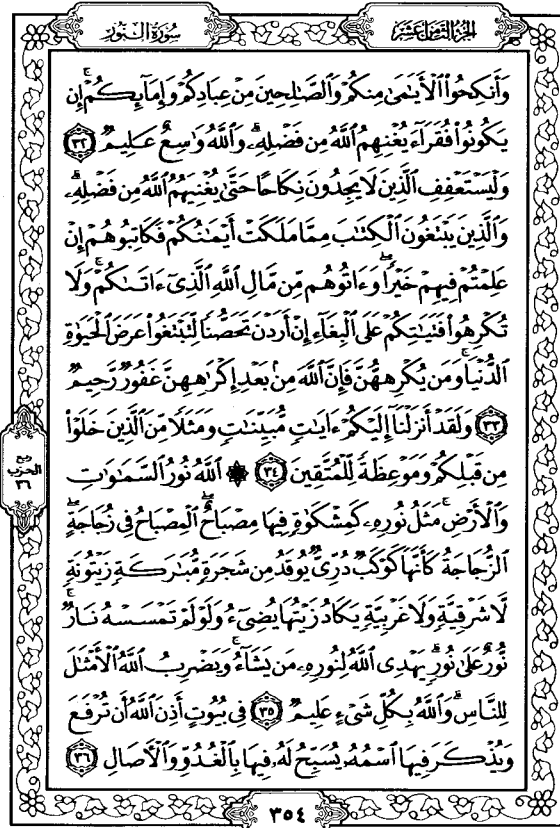 سُورَةُ النُّورِ
الجُزْءُ الثَّامِنَ عَشَرَ
وَأَنكِحُوا۟ ٱلْأَيَـٰمَىٰ مِنكُمْ وَٱلصَّـٰلِحِينَ مِنْ عِبَادِكُمْ وَإِمَآئِكُمْ ۚ إِن
يَكُونُوا۟ فُقَرَآءَ يُغْنِهِمُ ٱللَّهُ مِن فَضْلِهِۦ ۗ وَٱللَّهُ وَٰسِعٌ عَلِيمٌ ٣٢
وَلْيَسْتَعْفِفِ ٱلَّذِينَ لَا يَجِدُونَ نِكَاحًا حَتَّىٰ يُغْنِيَهُمُ ٱللَّهُ مِن فَضْلِهِۦ ۗ
وَٱلَّذِينَ يَبْتَغُونَ ٱلْكِتَـٰبَ مِمَّا مَلَكَتْ أَيْمَـٰنُكُمْ فَكَاتِبُوهُمْ إِنْ
عَلِمْتُمْ فِيهِمْ خَيْرًا ۖ وَءَاتُوهُم مِّن مَّالِ ٱللَّهِ ٱلَّذِىٓ ءَاتَىٰكُمْ ۚ وَلَا
تُكْرِهُوا۟ فَتَيَـٰتِكُمْ عَلَى ٱلْبِغَآءِ إِنْ أَرَدْنَ تَحَصُّنًا لِّتَبْتَغُوا۟ عَرَضَ ٱلْحَيَوٰةِ
ٱلدُّنْيَا ۚ وَمَن يُكْرِههُّنَّ فَإِنَّ ٱللَّهَ مِنۢ بَعْدِ إِكْرَٰهِهِنَّ غَفُورٌ رَّحِيمٌ
٣٣ وَلَقَدْ أَنزَلْنَآ إِلَيْكُمْ ءَايَـٰتٍ مُّبَيِّنَـٰتٍ وَمَثَلًا مِّنَ ٱلَّذِينَ خَلَوْا۟
مِن قَبْلِكُمْ وَمَوْعِظَةً لِّلْمُتَّقِينَ ٣٤ ۞ ٱللَّهُ نُورُ ٱلسَّمَـٰوَٰتِ
وَٱلْأَرْضِ ۚ مَثَلُ نُورِهِۦ كَمِشْكَوٰةٍ فِيهَا مِصْبَاحٌ ۖ ٱلْمِصْبَاحُ فِى زُجَاجَةٍ ۖ
ٱلزُّجَاجَةُ كَأَنَّهَا كَوْكَبٌ دُرِّىٌّ يُوقَدُ مِن شَجَرَةٍ مُّبَـٰرَكَةٍ زَيْتُونَةٍ
لَّا شَرْقِيَّةٍ وَلَا غَرْبِيَّةٍ يَكَادُ زَيْتُهَا يُضِىٓءُ وَلَوْ لَمْ تَمْسَسْهُ نَارٌ ۚ
نُّورٌ عَلَىٰ نُورٍ ۗ يَهْدِى ٱللَّهُ لِنُورِهِۦ مَن يَشَآءُ ۚ وَيَضْرِبُ ٱللَّهُ ٱلْأَمْثَـٰلَ
لِلنَّاسِ ۗ وَٱللَّهُ بِكُلِّ شَىْءٍ عَلِيمٌ ٣٥ فِى بُيُوتٍ أَذِنَ ٱللَّهُ أَن تُرْفَعَ
وَيُذْكَرَ فِيهَا ٱسْمُهُۥ يُسَبِّحُ لَهُۥ فِيهَا بِٱلْغُدُوِّ وَٱلْـَٔاصَالِ ٣٦
ربع
الحزب
٣٦
٣٥٤